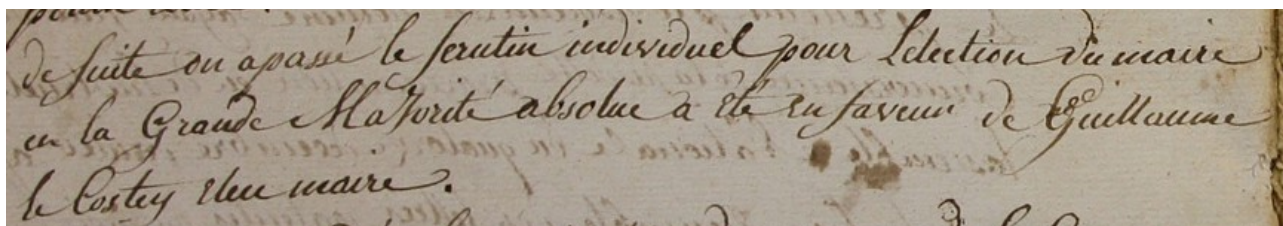 de suite on a passé le scrutin individuel pour Lelection du maire
en la Grande Majorité absolue a été en faveur de Guillaume
le Costey Eleu maire.